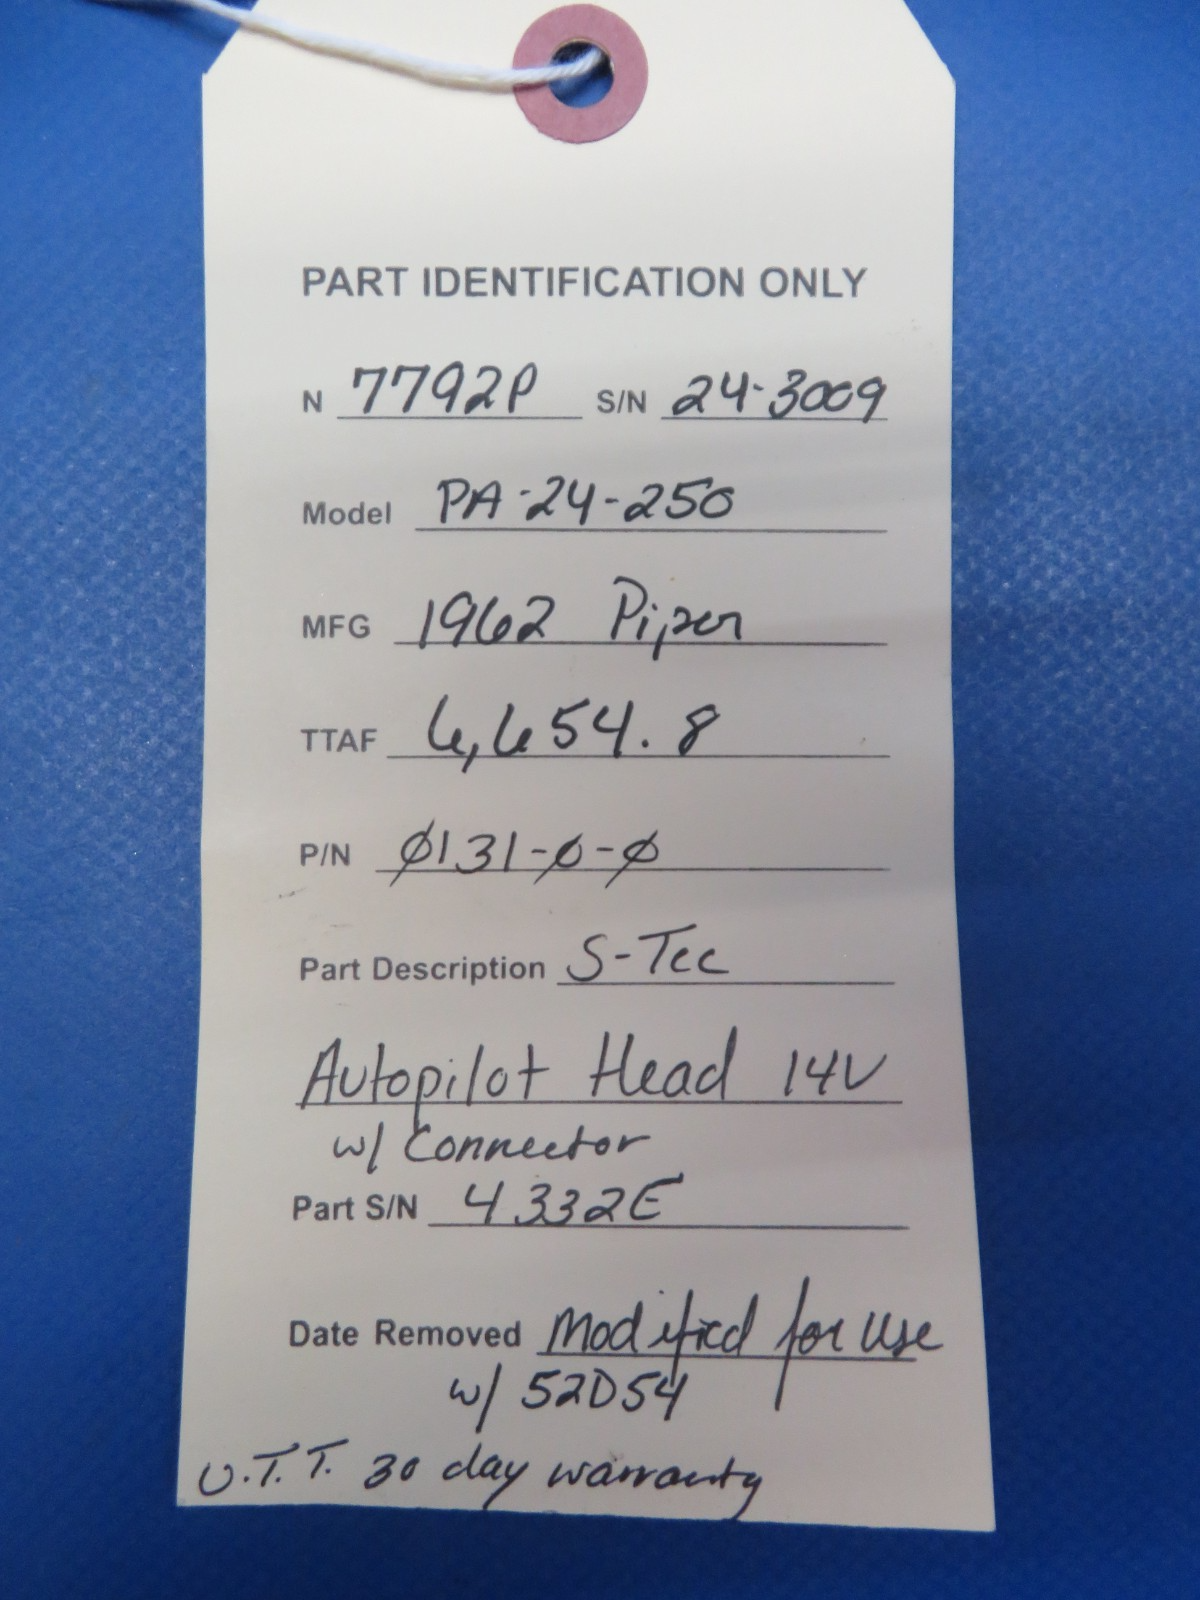 PART IDENTIFICATION ONLY
N 7792P S/N 24-3009
Model PA-24-250
MFG 1962 Piper
TTAF 6,654.8
P/N Ø131-Ø-Ø
Part Description S-Tec
Autopilot Head 14V
w/ Connector
Part S/N 4332E
Date Removed Modified for use
w/ 52D54
U.T.T. 30 day warranty